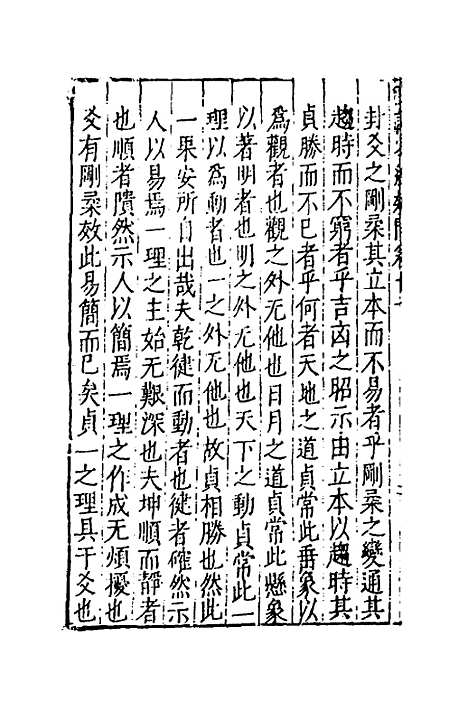 封爻之剛柔其立本而不易者乎剛柔之變通其
趨時而不窮者乎吉凶之昭示由立本以趨時其
貞勝而不已者乎何者天地之道貞常此垂象以
爲觀者也觀之外无他也日月之道貞常此懸象
以著明者也明之外无他也天下之動貞常此一
理以爲動者也一之外无他也故貞相勝也然此
一果安所自出哉夫乾健而動者也健者確然示
人以易焉一理之主始无艱深也夫坤順而靜者
也順者隤然示人以簡焉一理之作成无煩擾也
爻有剛柔效此易簡而已矣貞一之理具于爻也